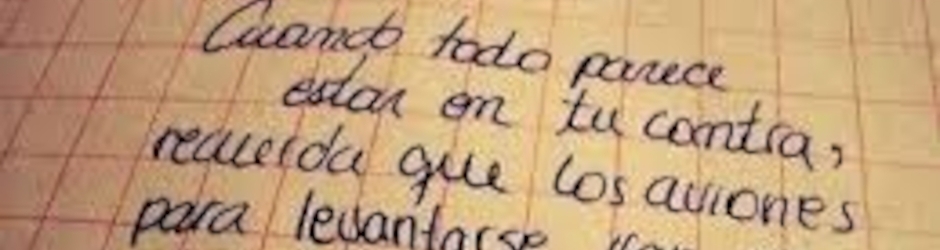 Cuando todo parece
estar en tu contra,
recuerda que los aviones
para levantarse